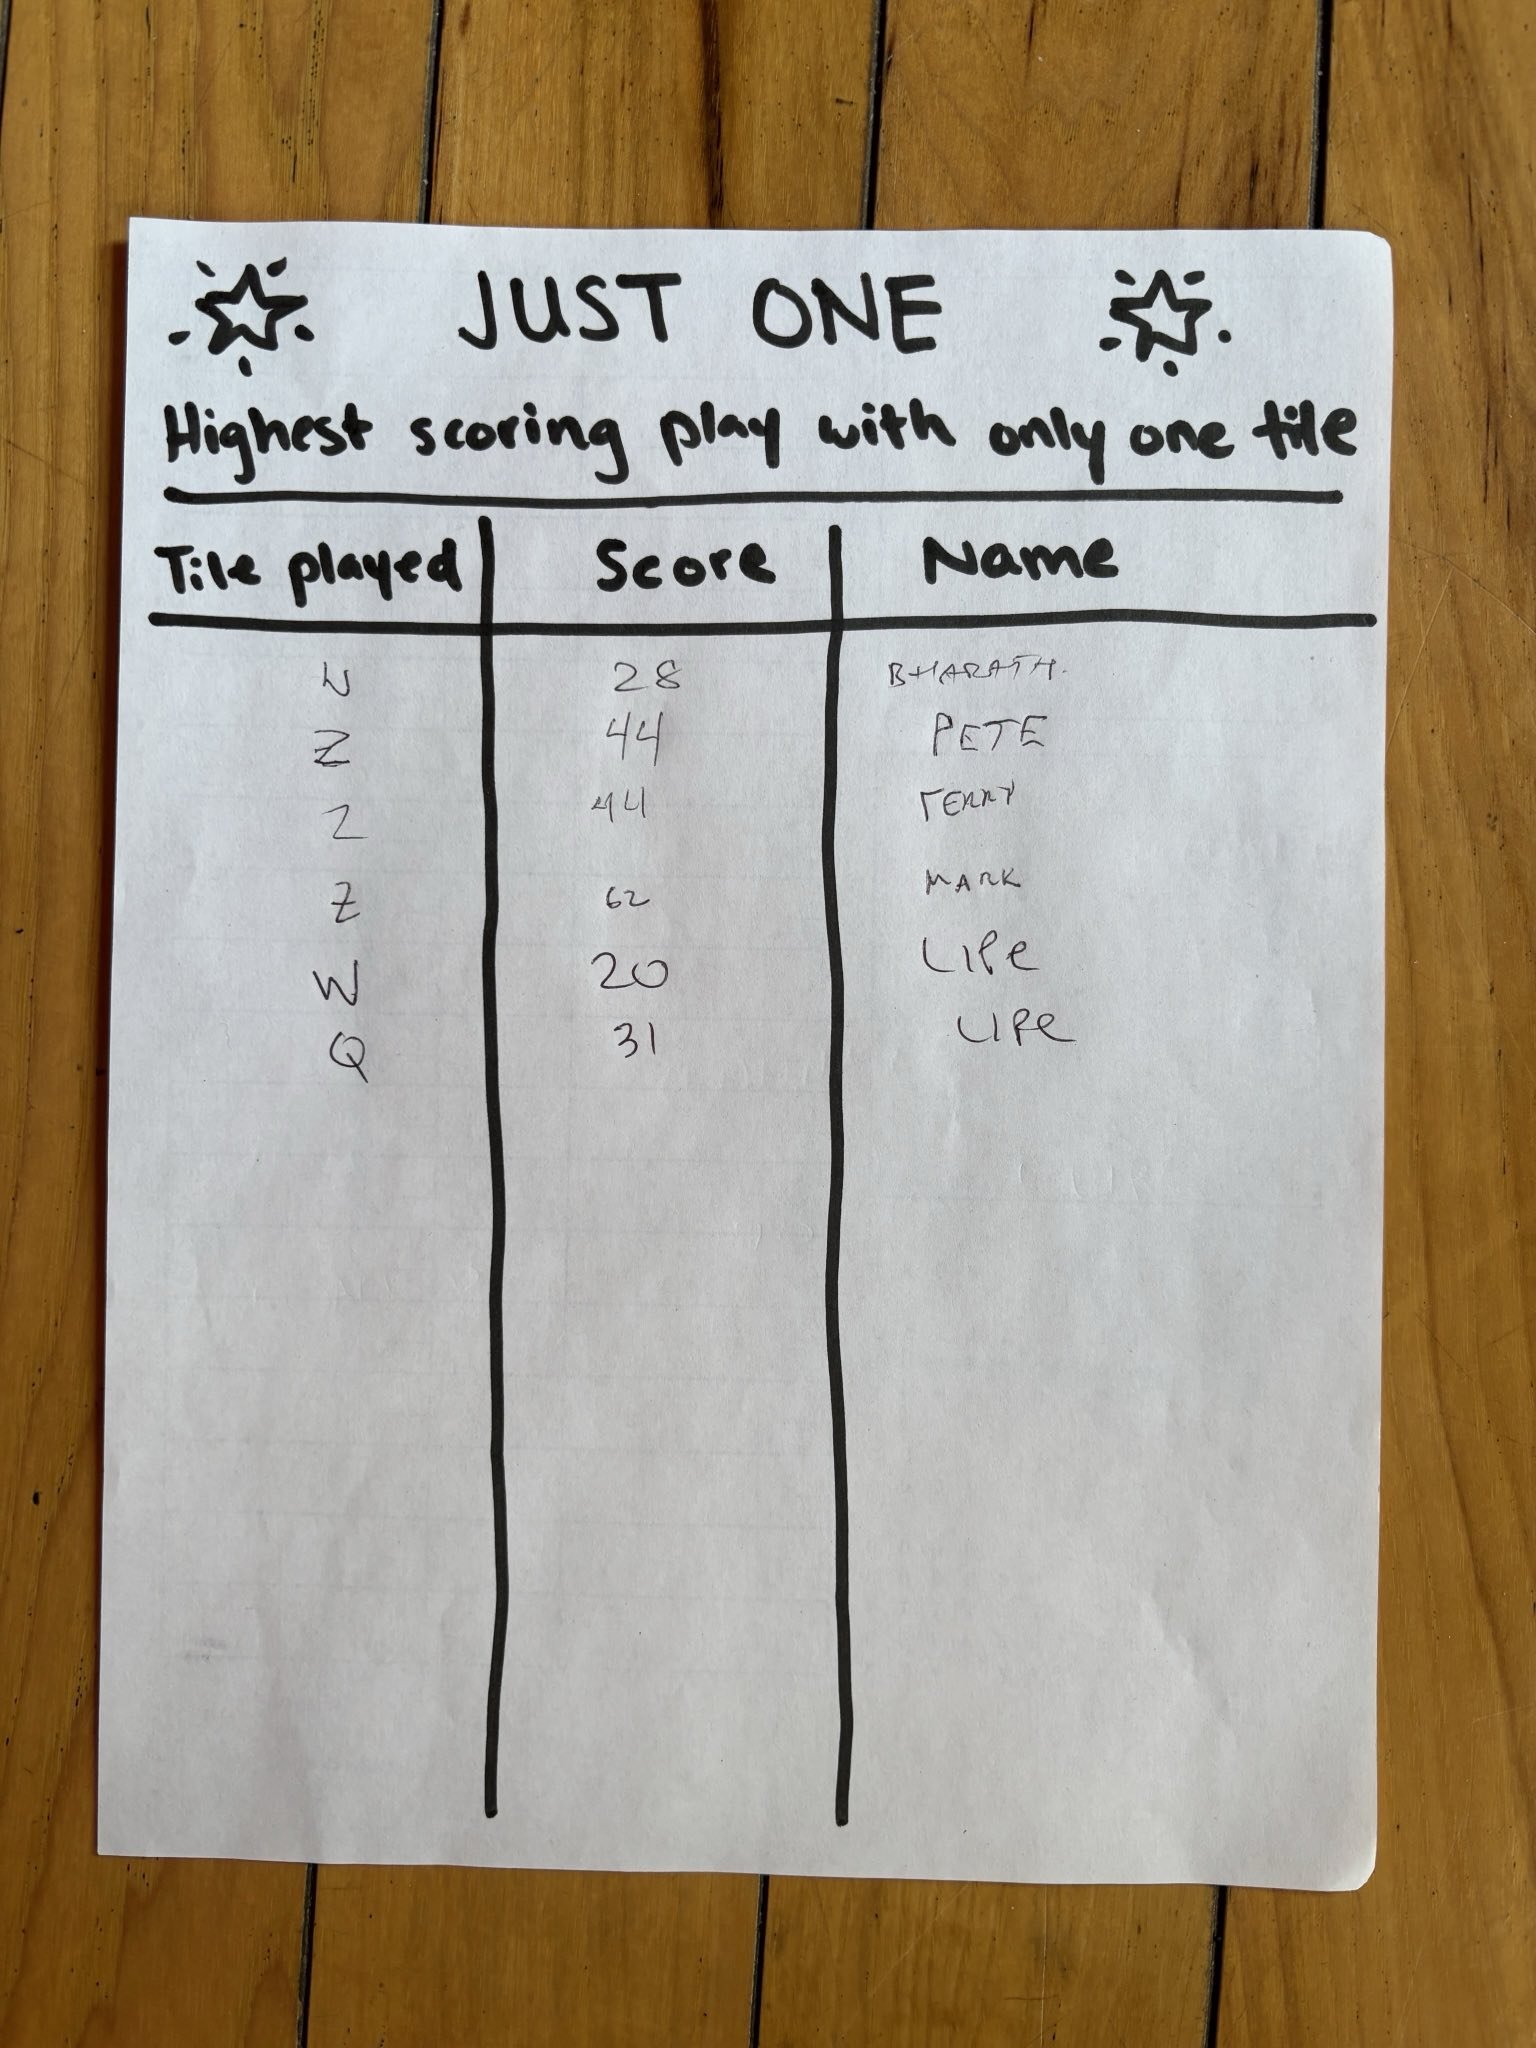 JUST ONE
Highest scoring play with only one tile
Tile played Score Name
28 BHARATH.
Z 44 PETE
Z 44 TERRY
Z 62 MARK
W 20 LIPe
Q 31 LIPe